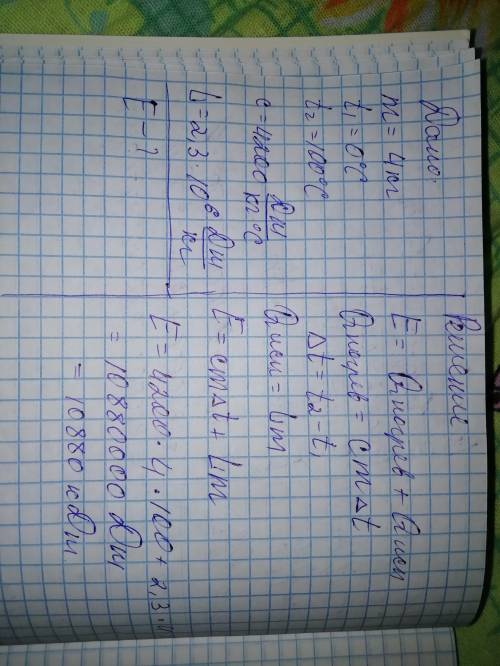 Дано:
m = 4 кг
t₁ = 0°C
t₂ = 100°C
c = 4200 Дж/кг°C
L = 2,3·10⁶ Дж/кг
E – ?
Решение:
E = Qнагрев + Qисп
Qнагрев = cmΔt
Δt = t₂ - t₁
Qисп = Lm
E = cmΔt + Lm
E = 4200·4·100 + 2,3·
= 10880000 Дж
= 10880 кДж.